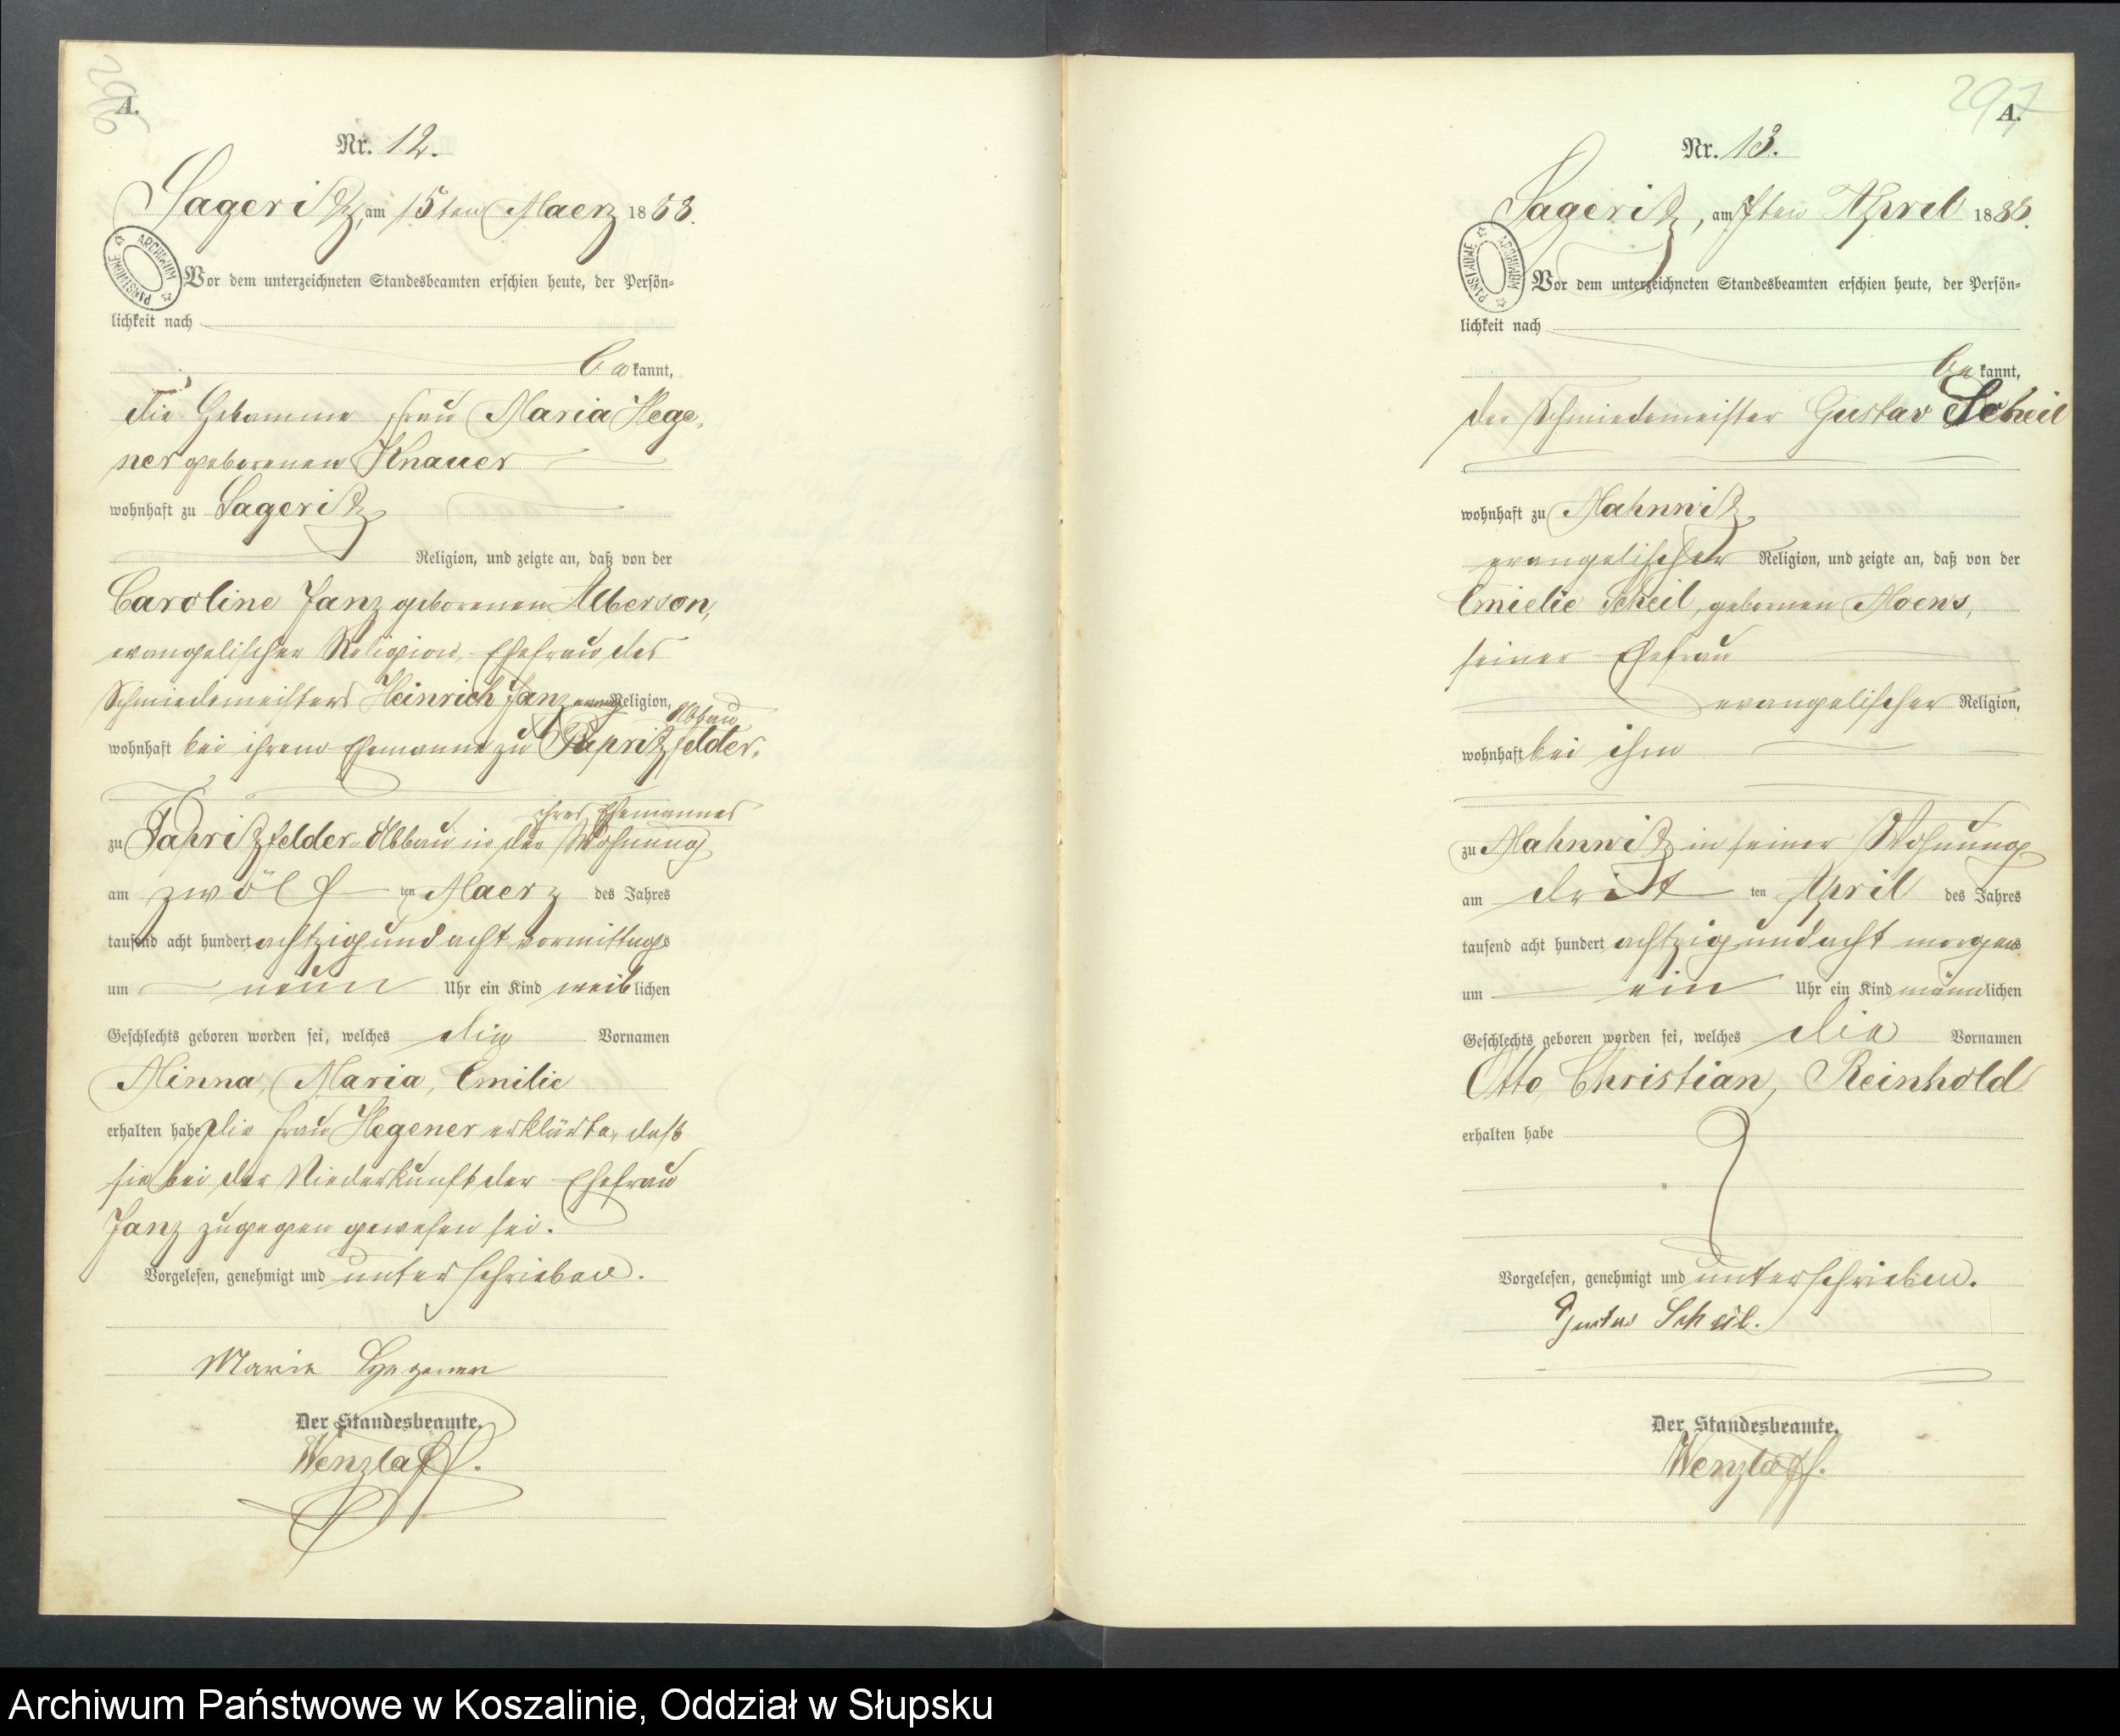 296
A.
Nr. 12.
Sageritz, am 15ten Maerz 1888.
ARCHIWUM PAŃSTWOWE
Vor dem unterzeichneten Standesbeamten erschien heute, der Persön-
lichkeit nach
be kannt,
die Hebamme Frau Maria Hege-
ner geborenen Knauer
wohnhaft zu Sageritz
Religion, und zeigte an, daß von der
Caroline Janz geborenen Alberson,
evangelischer Religion, Ehefrau des
Schmiedemeisters Heinrich Janz evang Religion,
Abbau
wohnhaft bei ihrem Ehemanne zu Papritzfelder-
ihres Ehemannes
zu Papritzfelder-Abbau in der Wohnung
am zwölf ten Maerz des Jahres
tausend acht hundert achtzig und acht vormittags
um neun Uhr ein Kind weiblichen
Geschlechts geboren worden sei, welches die Vornamen
Minna, Maria, Emilie
erhalten habe, die Frau Hegener erklärte, daß
sie bei der Niederkunft der Ehefrau
Janz zugegen gewesen sei.
Vorgelesen, genehmigt und unterschrieben.
Marie Hegener
Der Standesbeamte.
Wenzlaff.
297
A.
Nr. 13.
Sageritz, am 7ten April 1888.
ARCHIWUM PAŃSTWOWE
Vor dem unterzeichneten Standesbeamten erschien heute, der Persön-
lichkeit nach
be kannt,
der Schmiedemeister Gustav Scheil
wohnhaft zu Mahnwitz
evangelischer Religion, und zeigte an, daß von der
Emielie Scheil, gebornen Moens,
seiner Ehefrau
evangelischer Religion,
wohnhaft bei ihm
zu Mahnwitz in seiner Wohnung
am dritt ten April des Jahres
tausend acht hundert achtzig und acht morgens
um ein Uhr ein Kind männlichen
Geschlechts geboren worden sei, welches die Vornamen
Otto, Christian, Reinhold
erhalten habe
Vorgelesen, genehmigt und unterschrieben.
Gustav Scheil.
Der Standesbeamte.
Wenzlaff.
Archiwum Państwowe w Koszalinie, Oddział w Słupsku